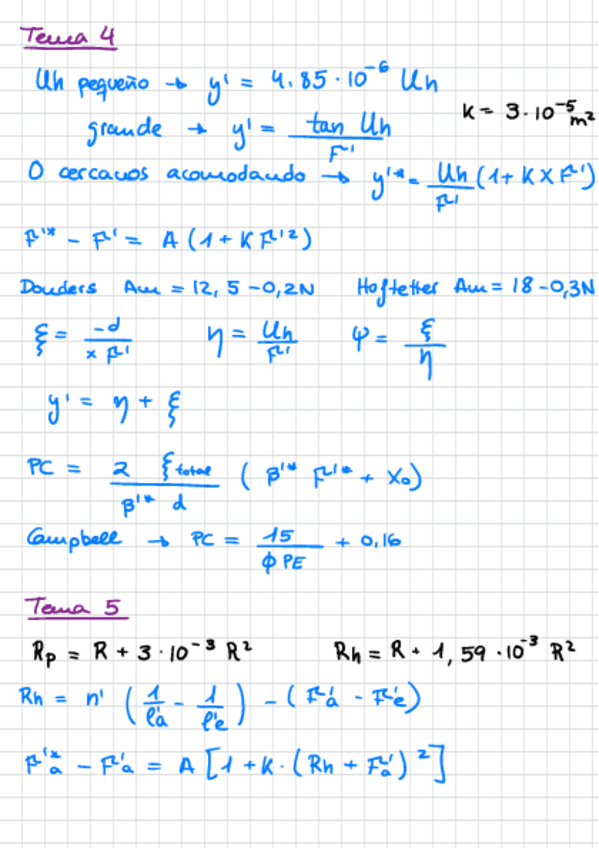 Tema 4
Uh pequeño → y' = 4.85·10⁻⁶ Uh
K = 3·10⁻⁵ m²
grande → y' = tan Uh / F'
O cercanos acomodando → y'* = Uh / F' (1 + K X F')
F'* - F' = A (1 + K F'²)
Donders Am = 12,5 - 0,2N Hoftetter Am = 18 - 0,3N
ξ = -d / x F' η = Uh / F' φ = ξ / η
y' = η + ξ
PC = 2 ξ total / β'* d (β'* F'* + X₀)
Campbell → PC = 15 / ϕ PE + 0,16
Tema 5
Rp = R + 3·10⁻³ R² Rh = R + 1,59·10⁻³ R²
Rh = n' (1/ℓ'a - 1/ℓ'e) - (F'a - F'e)
F'*a - F'a = A [1 + K·(Rh + F'a)²]